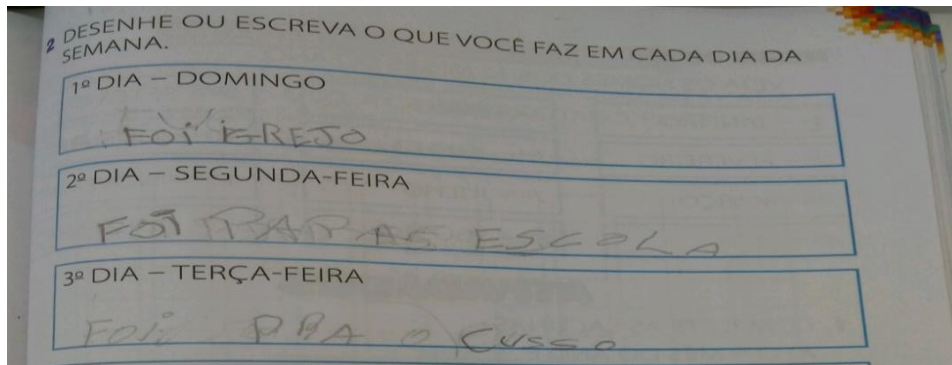 2 DESENHE OU ESCREVA O QUE VOCÊ FAZ EM CADA DIA DA
SEMANA.
1º DIA – DOMINGO
FOi iGREJO
2º DIA – SEGUNDA-FEIRA
FOi PARAS ESCOLA
3º DIA – TERÇA-FEIRA
FOi PRA O CUSSO